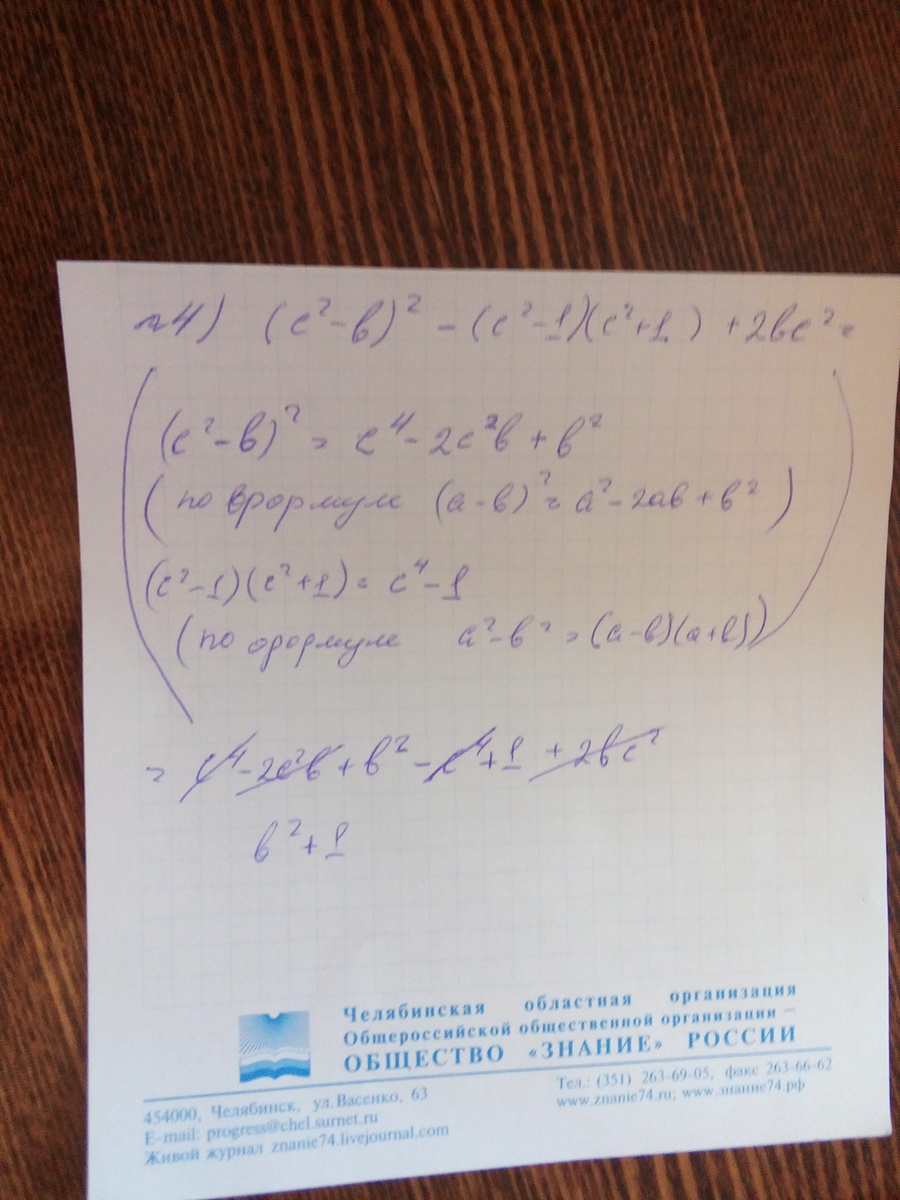 №4) (c²-b)² - (c²-1)(c²+1) + 2bc² =
(c²-b)² = c⁴ - 2c²b + b²
(по формуле (a-b)² = a² - 2ab + b²)
(c²-1)(c²+1) = c⁴-1
(по формуле a²-b² = (a-b)(a+b))
= c⁴ - 2c²b + b² - c⁴ + 1 + 2bc²
b² + 1
Челябинская областная организация
Общероссийской общественной организации –
ОБЩЕСТВО «ЗНАНИЕ» РОССИИ
454000, Челябинск, ул.Васенко, 63
E-mail: progress@chel.surnet.ru
Живой журнал znanie74.livejournal.com
Тел.: (351) 263-69-05, факс 263-66-62
www.znanie74.ru; www.знание74.рф